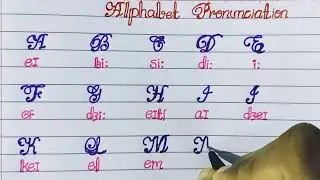 Alphabet Pronunciation
A B C D E
eI bi: si: di: i:
F G H I J
ef dʒi: eItʃ aI dʒeI
K L M
keI el em